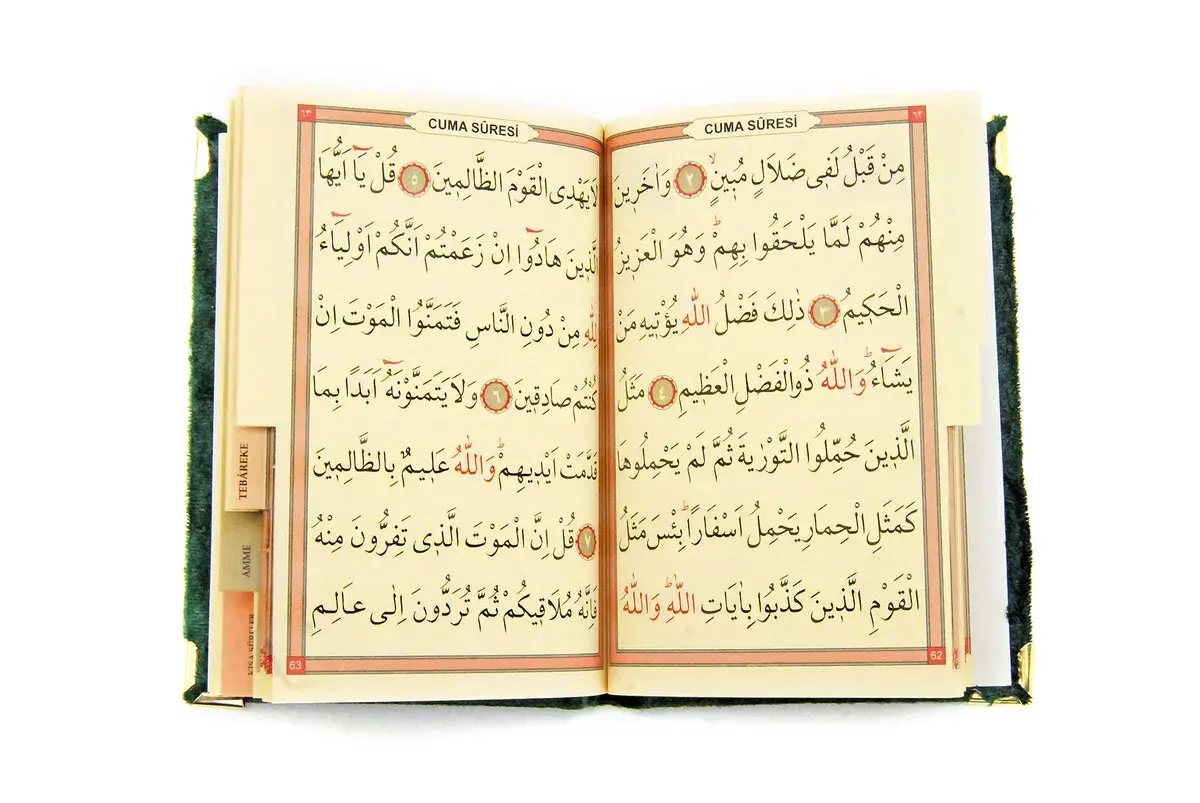 ٦٢
CUMA SÛRESİ
مِنْ قَبْلُ لَفٖى ضَلَالٍ مُبٖينٍ ۙ ٢ وَاٰخَرٖينَ
مِنْهُمْ لَمَّا يَلْحَقُوا بِهِمْ ؕ وَهُوَ الْعَزٖيزُ
الْحَكٖيمُ ٣ ذٰلِكَ فَضْلُ اللّٰهِ يُؤْتٖيهِ مَنْ
يَشَٓاءُ ؕ وَاللّٰهُ ذُوالْفَضْلِ الْعَظٖيمِ ٤ مَثَلُ
الَّذٖينَ حُمِّلُوا التَّوْرٰيةَ ثُمَّ لَمْ يَحْمِلُوهَا
كَمَثَلِ الْحِمَارِ يَحْمِلُ اَسْفَارًا ؕ بِئْسَ مَثَلُ
الْقَوْمِ الَّذٖينَ كَذَّبُوا بِاٰيَاتِ اللّٰهِ ؕ وَاللّٰهُ
62
٦٣
CUMA SÛRESİ
لَا يَهْدِى الْقَوْمَ الظَّالِمٖينَ ٥ قُلْ يَٓا اَيُّهَا
الَّذٖينَ هَادُٓوا اِنْ زَعَمْتُمْ اَنَّكُمْ اَوْلِيَٓاءُ
لِلّٰهِ مِنْ دُونِ النَّاسِ فَتَمَنَّوُا الْمَوْتَ اِنْ
كُنْتُمْ صَادِقٖينَ ٦ وَلَا يَتَمَنَّوْنَهُٓ اَبَدًا بِمَا
قَدَّمَتْ اَيْدٖيهِمْ ؕ وَاللّٰهُ عَلٖيمٌ بِالظَّالِمٖينَ
٧ قُلْ اِنَّ الْمَوْتَ الَّذٖى تَفِرُّونَ مِنْهُ
فَاِنَّهُ مُلَاقٖيكُمْ ثُمَّ تُرَدُّونَ اِلٰى عَالِمِ
63
TEBÂREKE
AMME
KISA SÛRELER